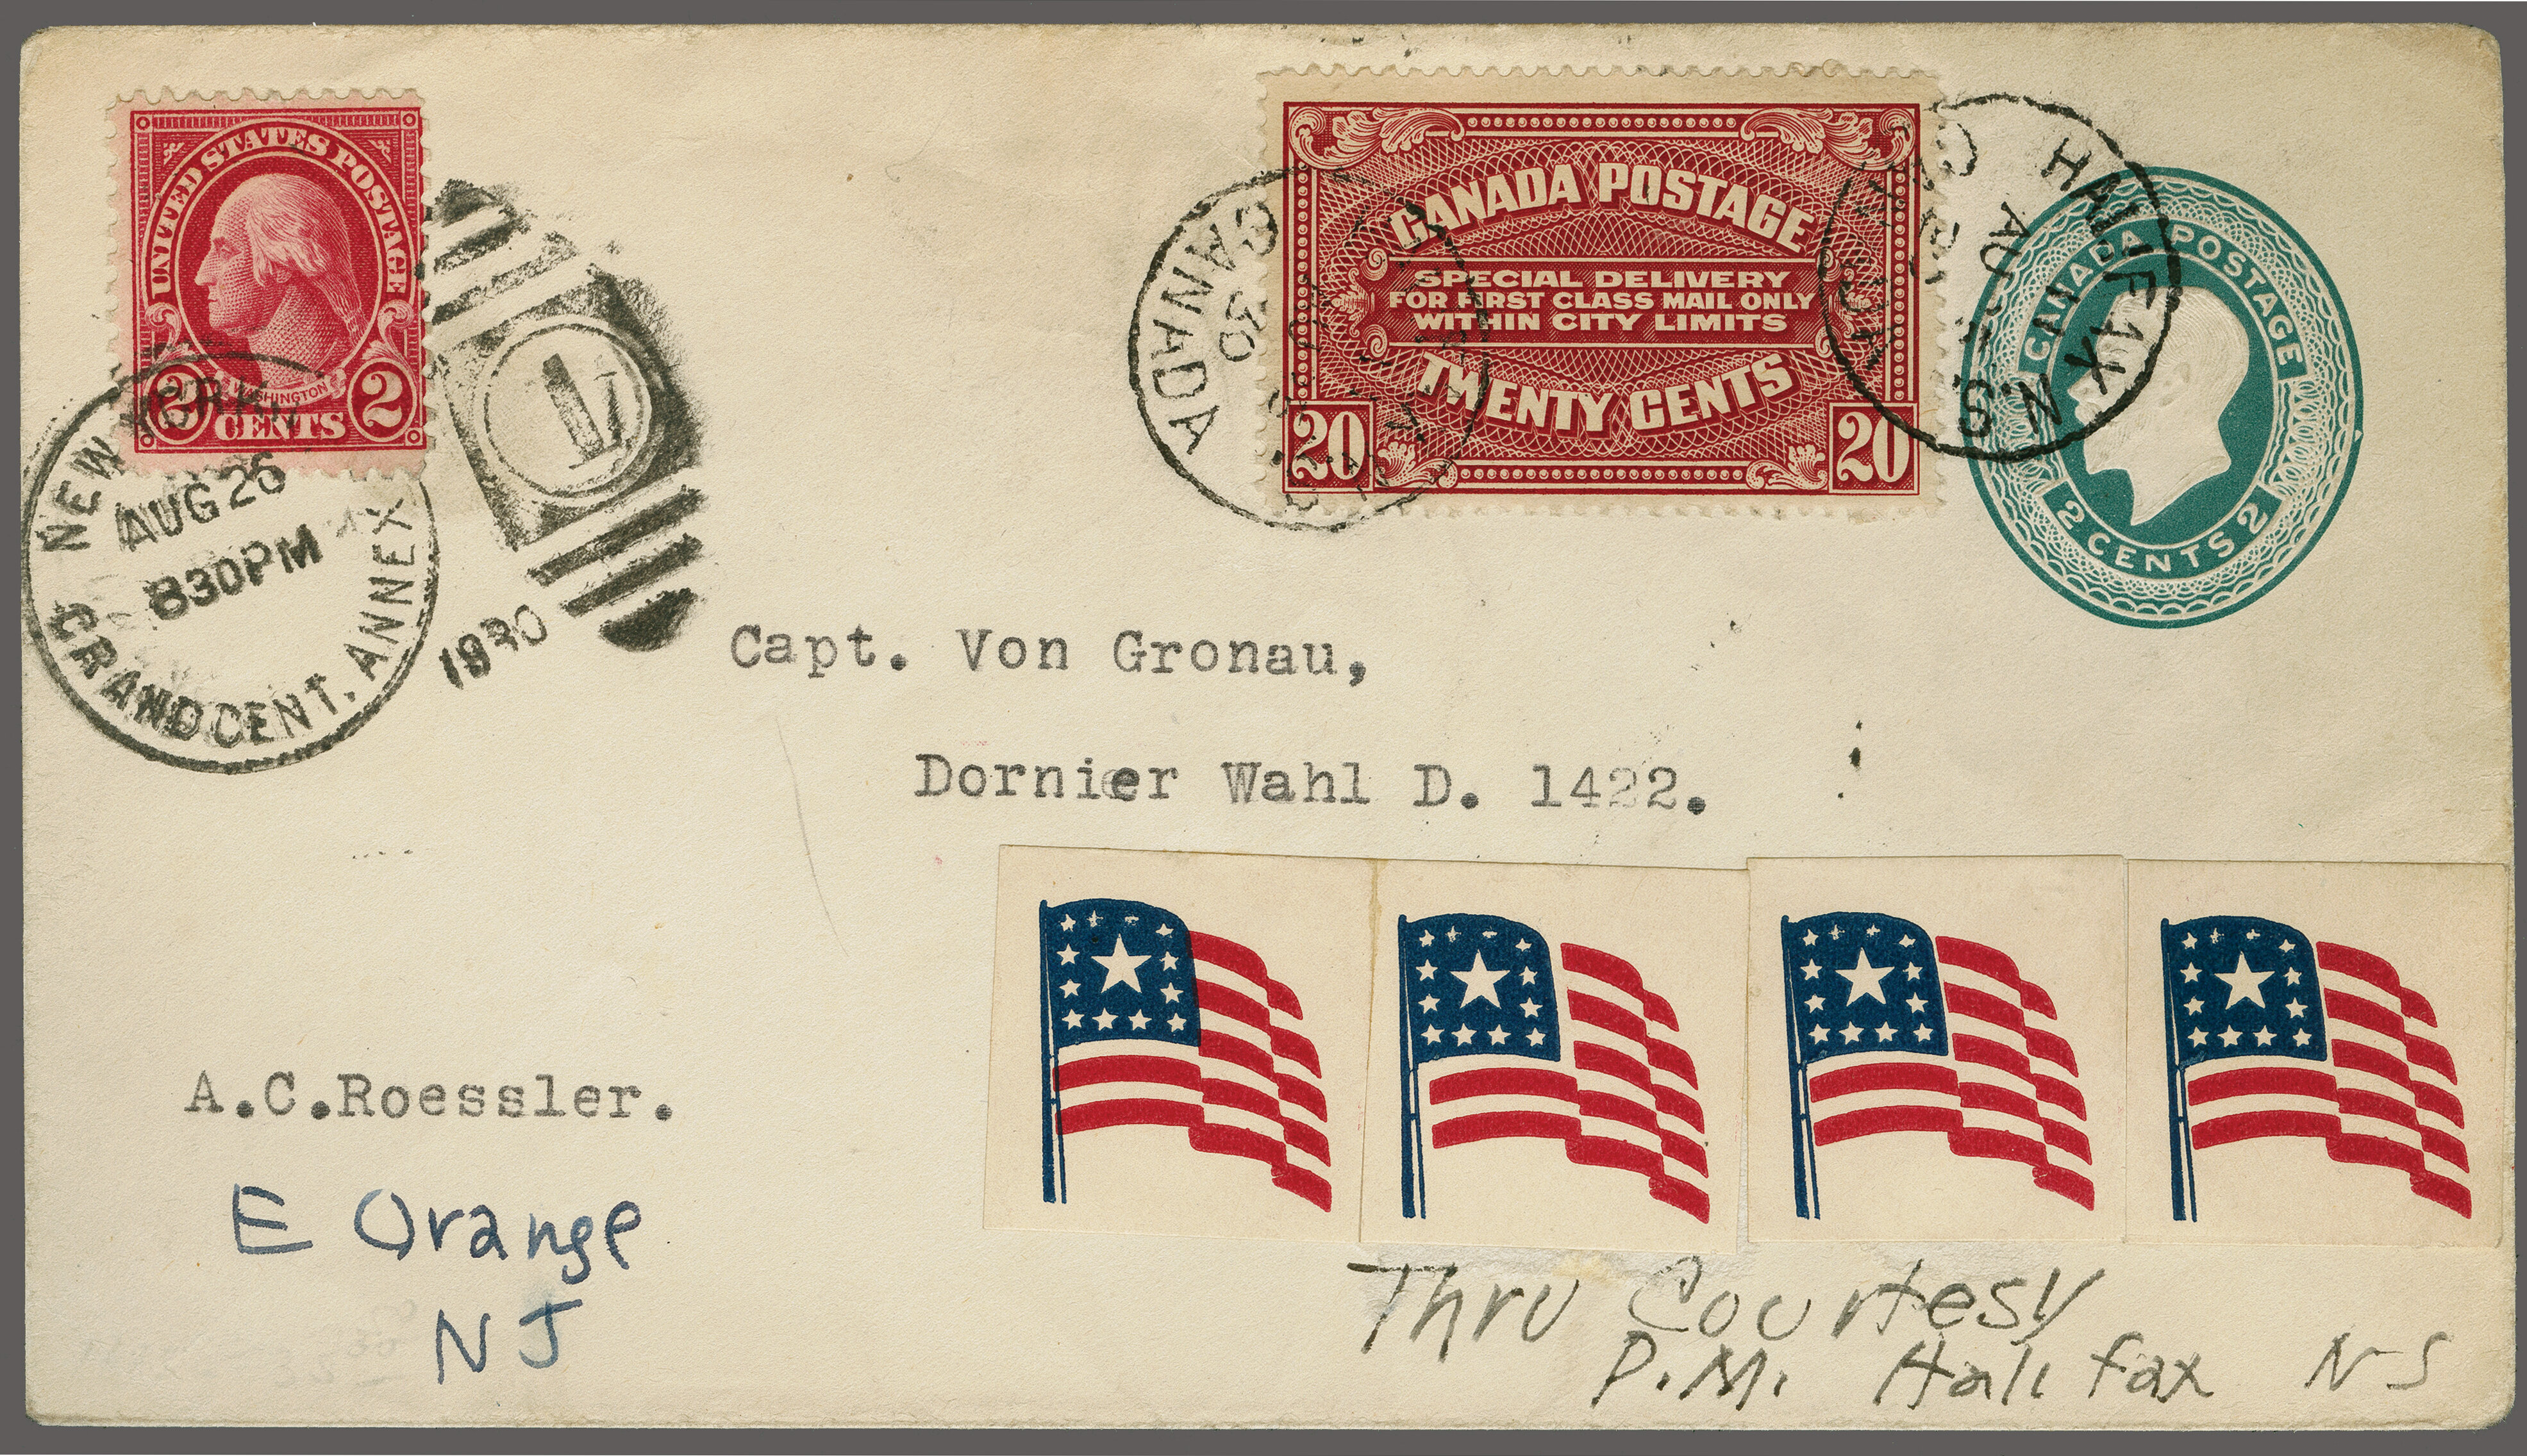 UNITED STATES POSTAGE
WASHINGTON
2 CENTS 2
NEW YORK
AUG 26
830PM
GRAND CENT. ANNEX
1930
CANADA POSTAGE
SPECIAL DELIVERY
FOR FIRST CLASS MAIL ONLY
WITHIN CITY LIMITS
TWENTY CENTS
20 20
CANADA
30
HALIFAX
AU
N.S.
CANADA POSTAGE
2 CENTS 2
Capt. Von Gronau,
Dornier Wahl D. 1422.
A.C.Roessler.
E Orange
NJ
Thru Courtesy
P.M. Halifax NS